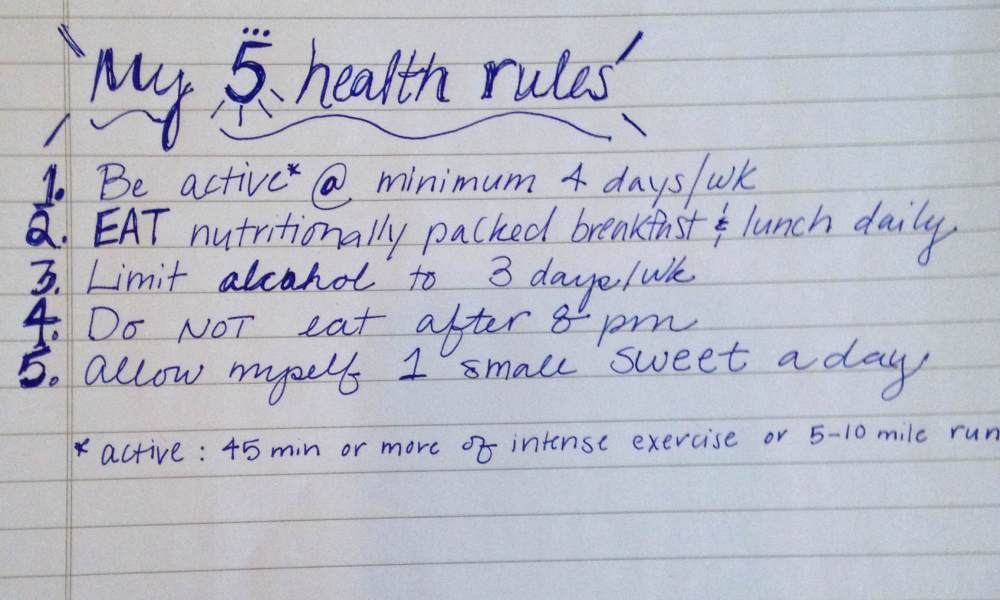 "My 5 health rules"
1. Be active* @ minimum 4 days/wk
2. EAT nutritionally packed breakfast & lunch daily
3. Limit alcahol to 3 days/wk
4. Do NOT eat after 8 pm
5. Allow myself 1 small sweet a day
* active : 45 min or more of intense exercise or 5-10 mile run